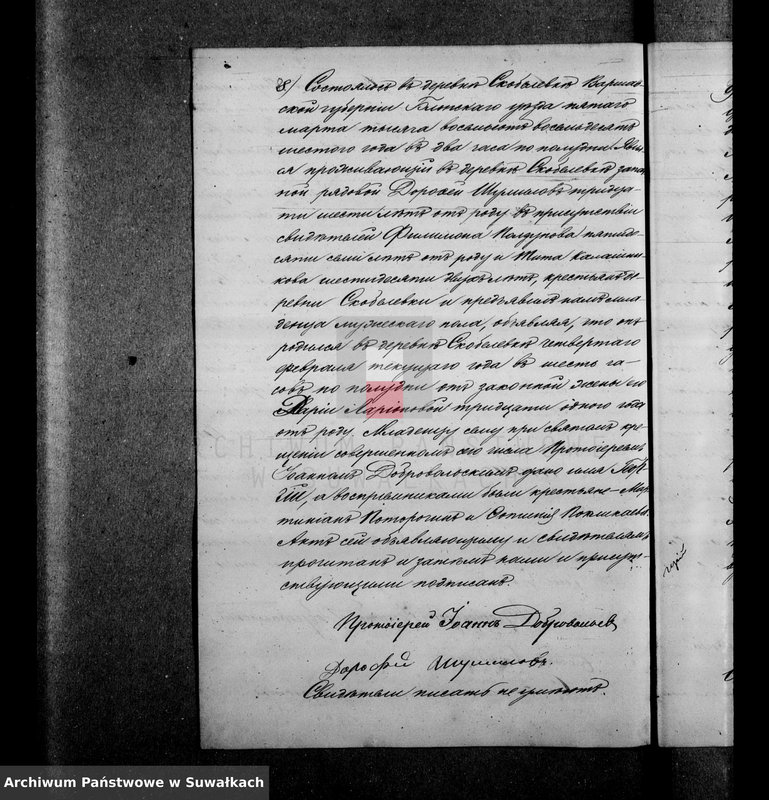 8) Состоялось въ деревнѣ Скобелевкѣ Варшав-
ской губернiи Блонскаго уѣзда пятаго
марта тысяча восемьсотъ восемьдесятъ
шестого года въ два часа по полудни. Явил-
ся проживающiй въ деревнѣ Скобелевкѣ запас-
ной рядовой Дорофей Шумиловъ тридца-
ти шести лѣтъ отъ роду въ присутствiи
свидѣтелей Филимона Полдунова пятиде-
сяти семи лѣтъ отъ роду и Тита Калашни-
кова шестидесяти двухъ лѣтъ, крестьянъ де-
ревни Скобелевки и предъявилъ намъ мла-
денца мужескаго пола, объявляя, что онъ
родился въ деревнѣ Скобелевкѣ четвертаго
февраля текущаго года въ шесть ча-
совъ по полудни отъ законной жены его
Дарiи Ларiоновой тридцати одного года
отъ роду. Младенцу сему при святомъ кре-
щенiи совершенномъ сего числа Протоiереемъ
Iоанномъ Добровольскимъ дано имя
а воспрiемниками были крестьяне Мар-
тинiанъ и
Актъ сей объявляющему и свидѣтелямъ
прочитанъ и затѣмъ нами и присут-
ствующими подписанъ.
Протоiерей Iоаннъ Добровольскiй
Дорофей Шумиловъ.
Свидѣтели писать не умѣютъ.
щiй
ARCHIWUM PAŃSTWOWE
W SUWAŁKACH
Archiwum Państwowe w Suwałkach